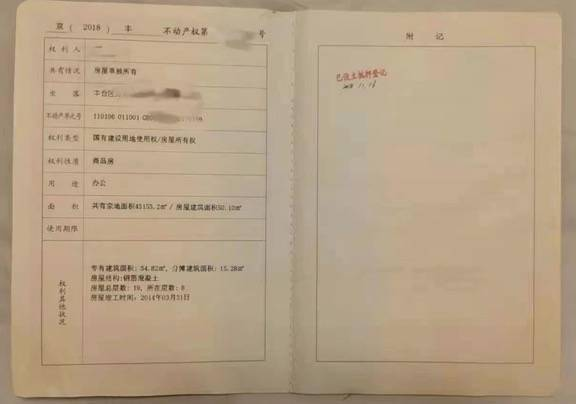 京( 2018 ) 丰 不动产权第 号
权利人
共有情况 房屋单独所有
坐落 丰台区
不动产单元号 110106 011001
权利类型 国有建设用地使用权/房屋所有权
权利性质 商品房
用途 办公
面积 共有宗地面积43153.2㎡ / 房屋建筑面积50.10㎡
使用期限
权利其他状况
专有建筑面积: 34.82㎡, 分摊建筑面积: 15.28㎡
房屋结构:钢筋混凝土
房屋总层数: 19, 所在层数: 8
房屋竣工时间: 2014年03月31日
附记
已设立抵押登记